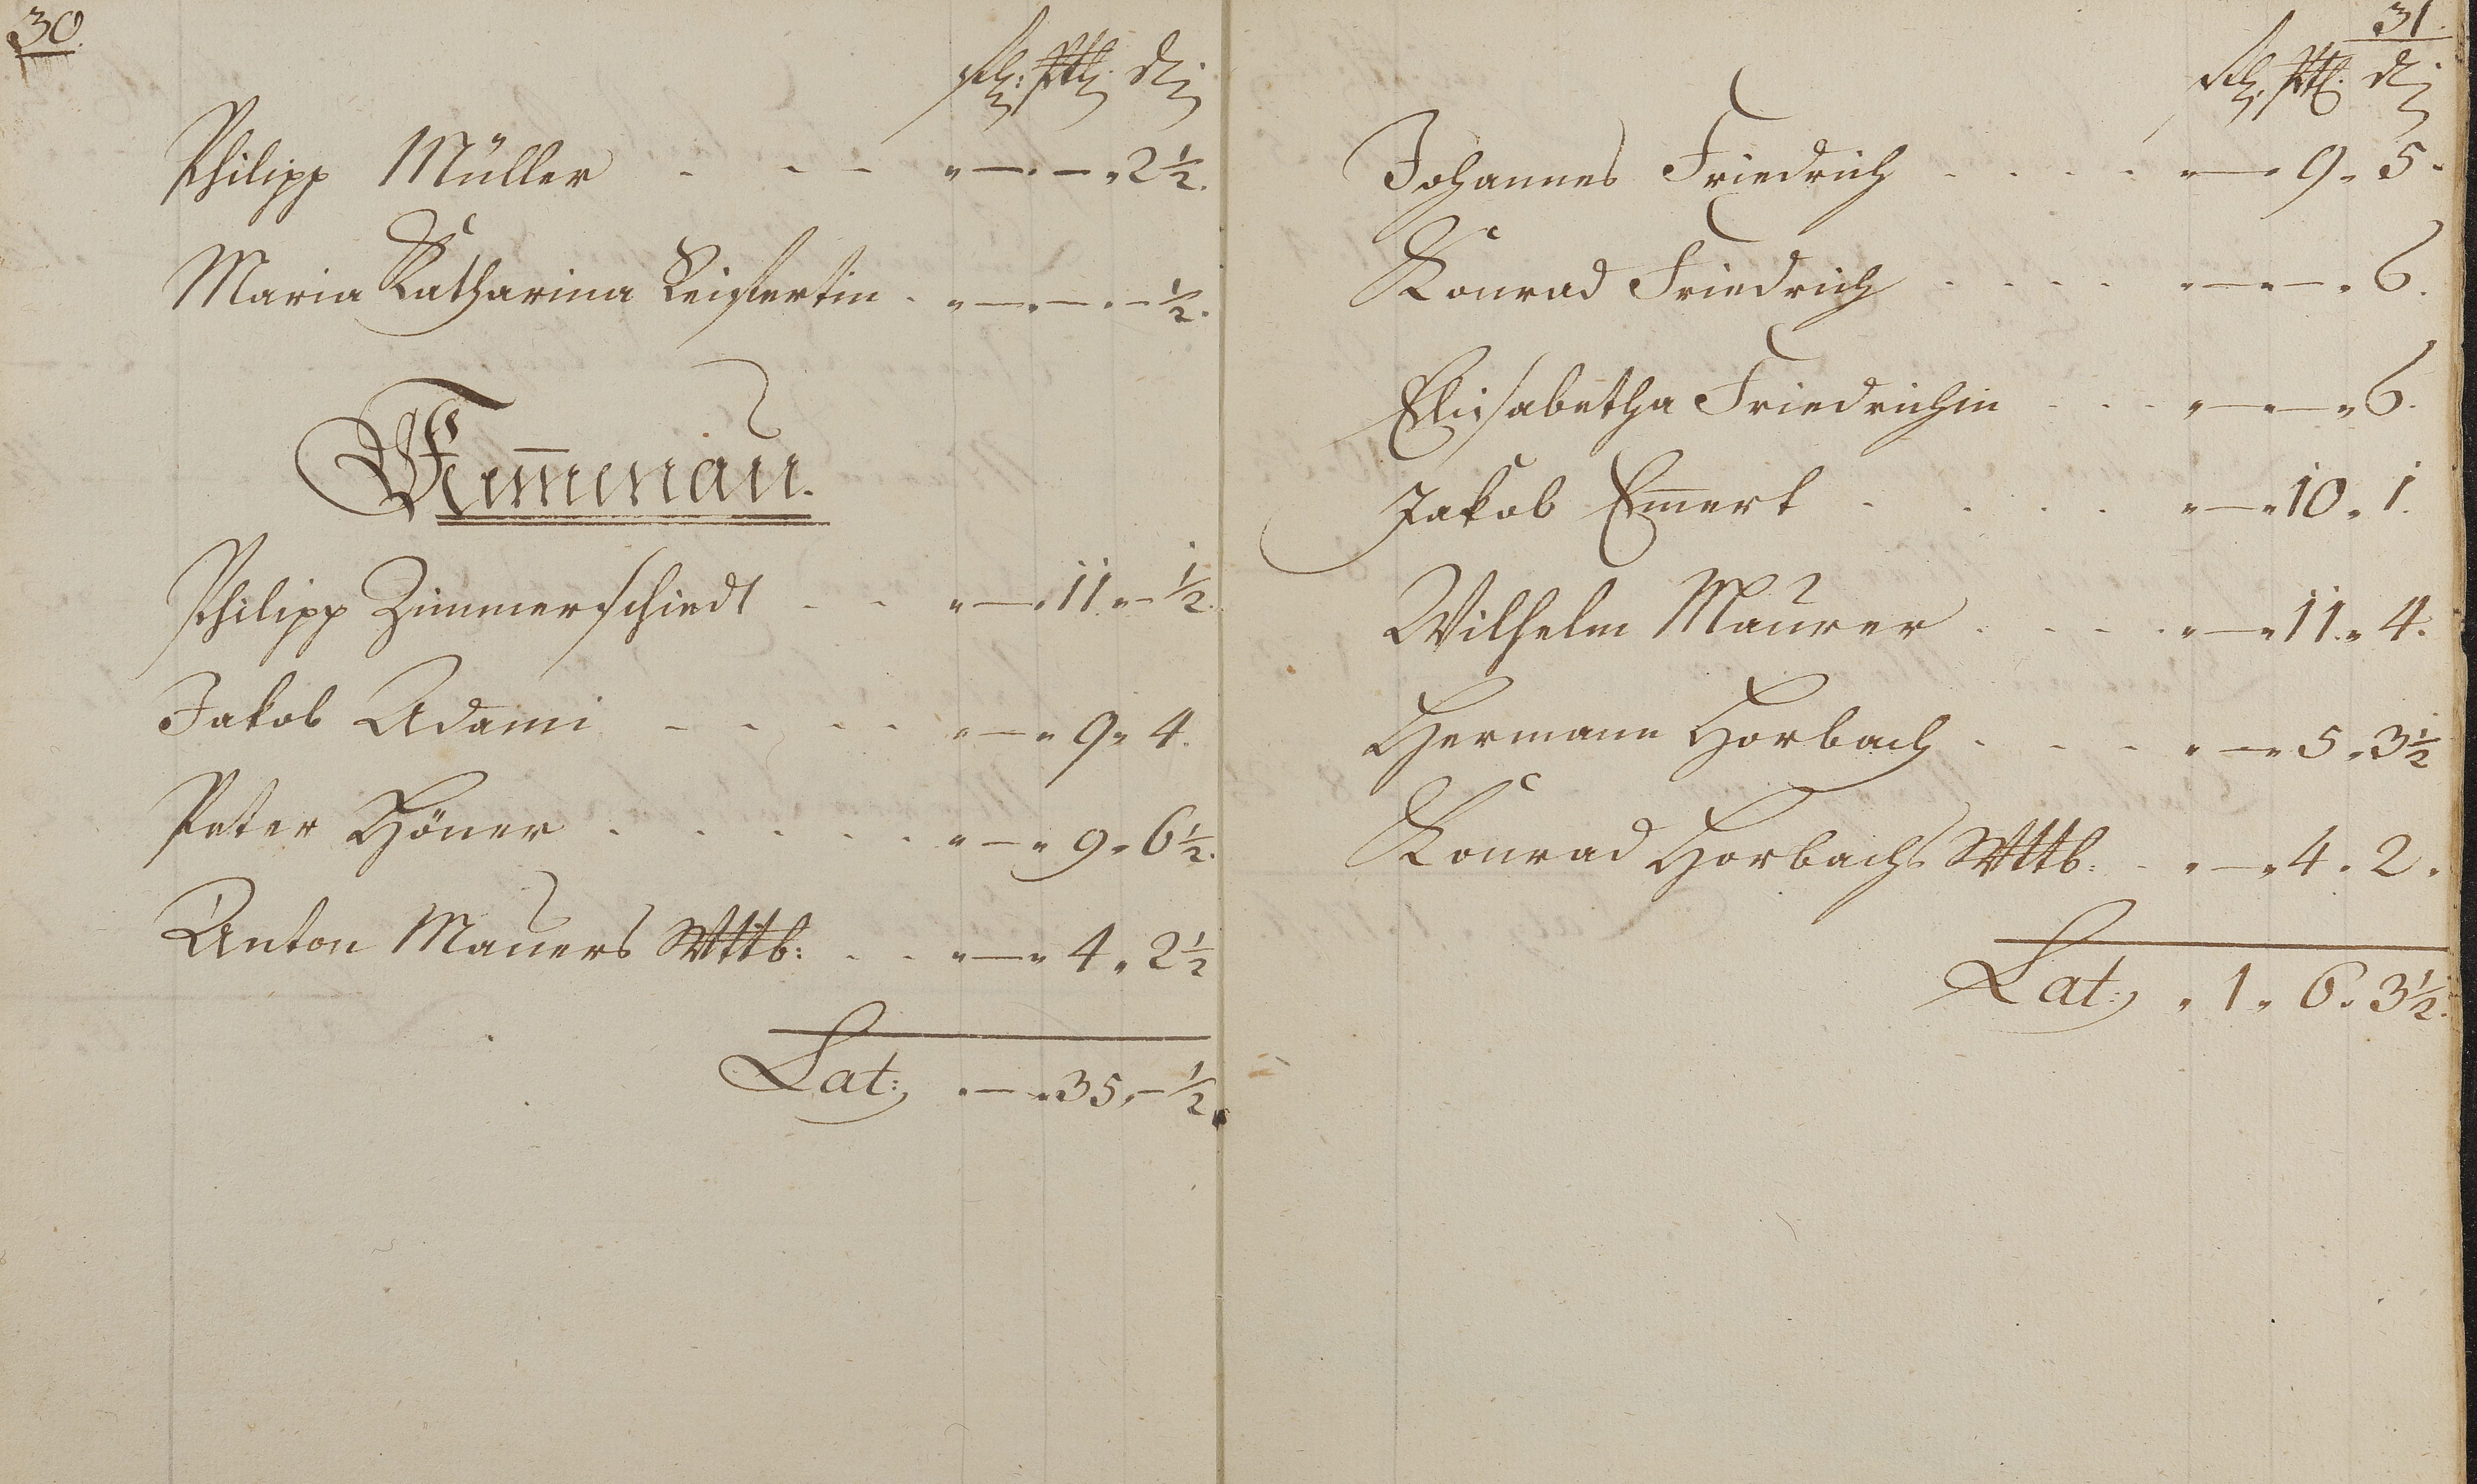 30.
Philipp Müller - - - " — . — " 2½.
Maria Katharina Seifertin . " — . — . — ½.
Kemmenau.
Philipp Zimmerschiedt - - " — . 11. " — ½.
Jakob Adami - - - - " — " 9 " 4.
Peter Höner . . . . . " — " 9 " 6½.
Anton Mauers Wttb: . . " — " 4 " 2½
Lat: " — " 35, — ½.
31.
Johannes Friedrich . . . . " — " 9 " 5.
Konrad Friedrich . . . . " — " — " 6.
Elisabetha Friedrichin . . . " — " — " 6.
Jakob Em̄ert . . . . " — " 10 " 1.
Wilhelm Maurer . . . . " — " 11. " 4.
Hermann Horbach . . . " — " 5 " 3½
Konrad Horbachs Wttb: . " — " 4 " 2.
Lat: " 1 " 6 " 3½.